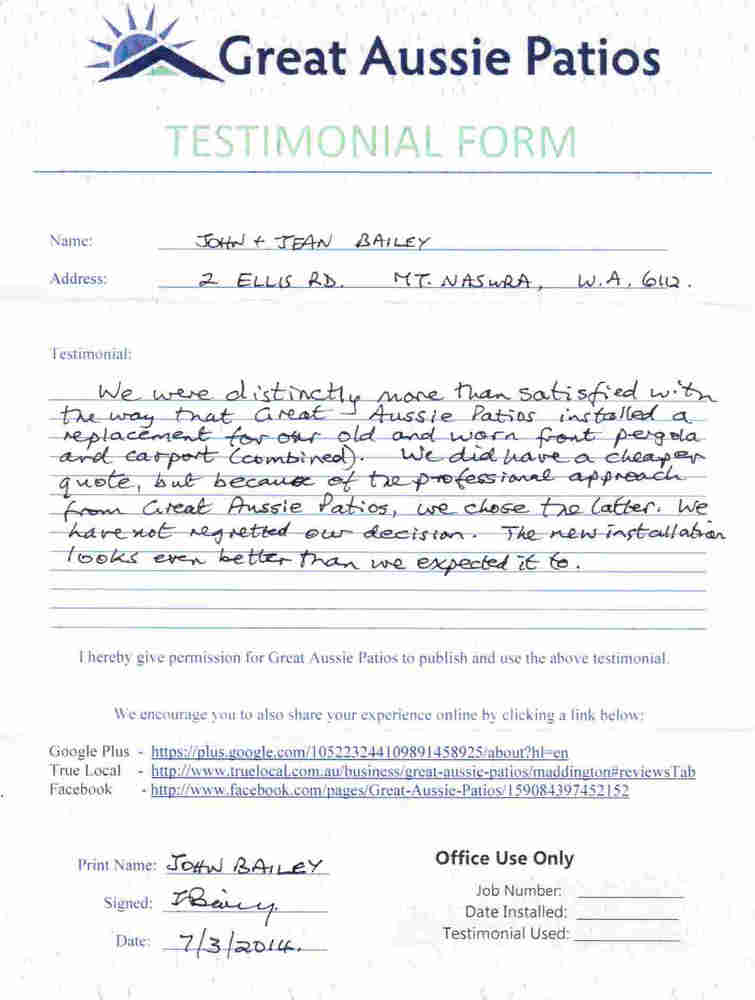 Great Aussie Patios
TESTIMONIAL FORM
Name: JOHN + JEAN BAILEY
Address: 2 ELLIS RD. MT. NASURA, W.A. 6112.
Testimonial:
We were distinctly more than satisfied with
the way that Great Aussie Patios installed a
replacement for our old and worn front pergola
and carport (combined). We did have a cheaper
quote, but because of the professional approach
from Great Aussie Patios, we chose the latter. We
have not regretted our decision. The new installation
looks even better than we expected it to.
I hereby give permission for Great Aussie Patios to publish and use the above testimonial.
We encourage you to also share your experience online by clicking a link below:
Google Plus - https://plus.google.com/105223244109891458925/about?hl=en
True Local - http://www.truelocal.com.au/business/great-aussie-patios/maddington#reviewsTab
Facebook - http://www.facebook.com/pages/Great-Aussie-Patios/159084397452152
Print Name: JOHN BAILEY
Signed: JBailey.
Date: 7/3/2014.
Office Use Only
Job Number:
Date Installed:
Testimonial Used: